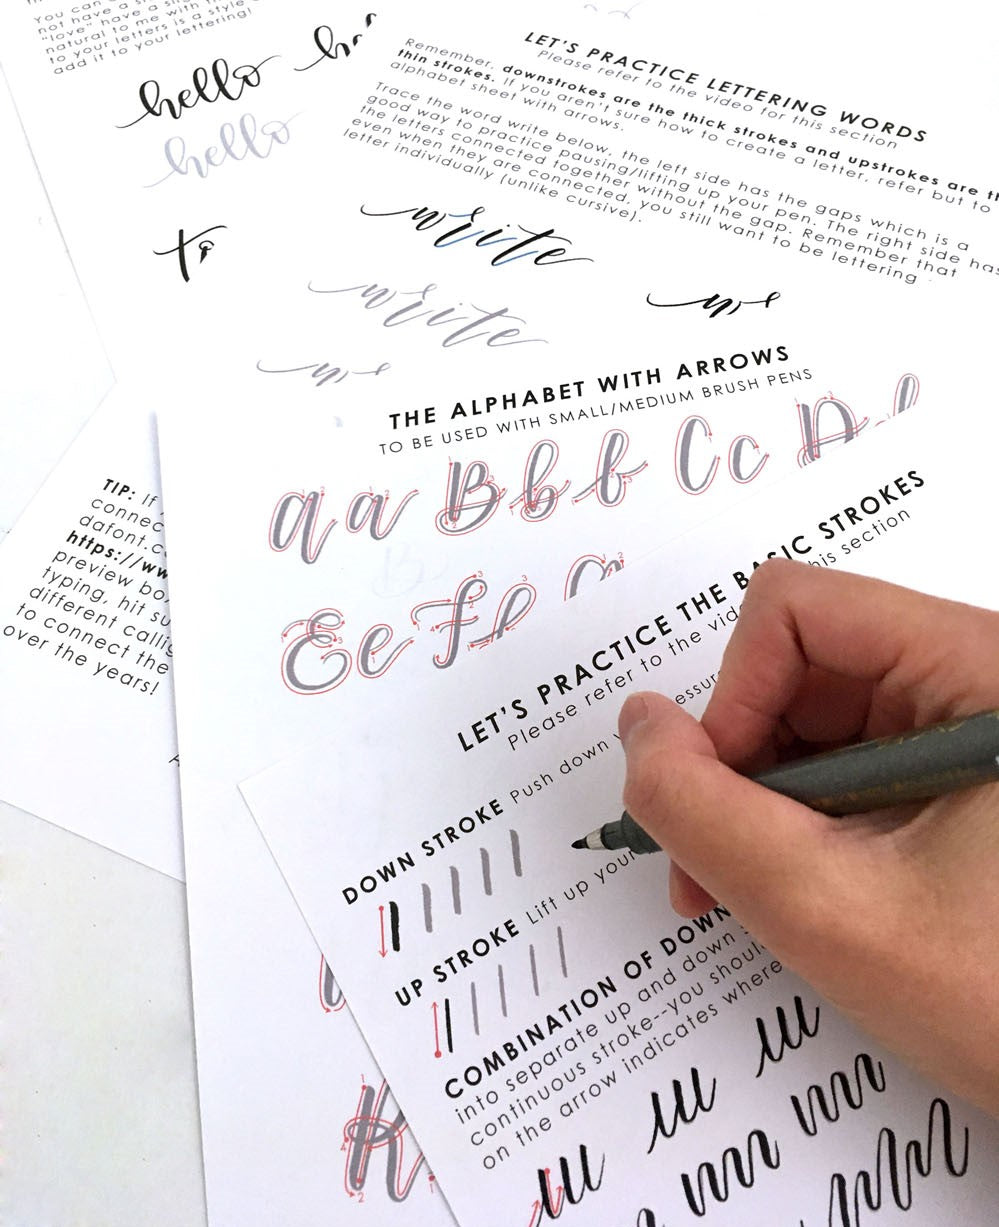 You can
not have a
"love" have a
natural to me with
to your letters is a style
add it to your lettering!
hello
hello
to
LET'S PRACTICE LETTERING WORDS
Please refer to the video for this section
Remember, downstrokes are the thick strokes and upstrokes are
thin strokes. If you aren't sure how to create a letter, refer but to
alphabet sheet with arrows.
Trace the word write below, the left side has the gaps which is a
good way to practice pausing/lifting up your pen. The right side has
the letters connected together without the gap. Remember that
even when they are connected, you still want to be lettering
letter individually (unlike cursive).
write
write
THE ALPHABET WITH ARROWS
TO BE USED WITH SMALL/MEDIUM BRUSH PENS
a a B b b C c D
E e F f
K
TIP: If
connec
dafont.c
https://ww
preview bo
typing, hit su
different callig
to connect the
over the years!
LET'S PRACTICE THE BASIC STROKES
Please refer to the vid his section
DOWN STROKE Push down essure
UP STROKE Lift up your
COMBINATION OF DOWN
into separate up and down
continuous stroke--you should
on the arrow indicates where